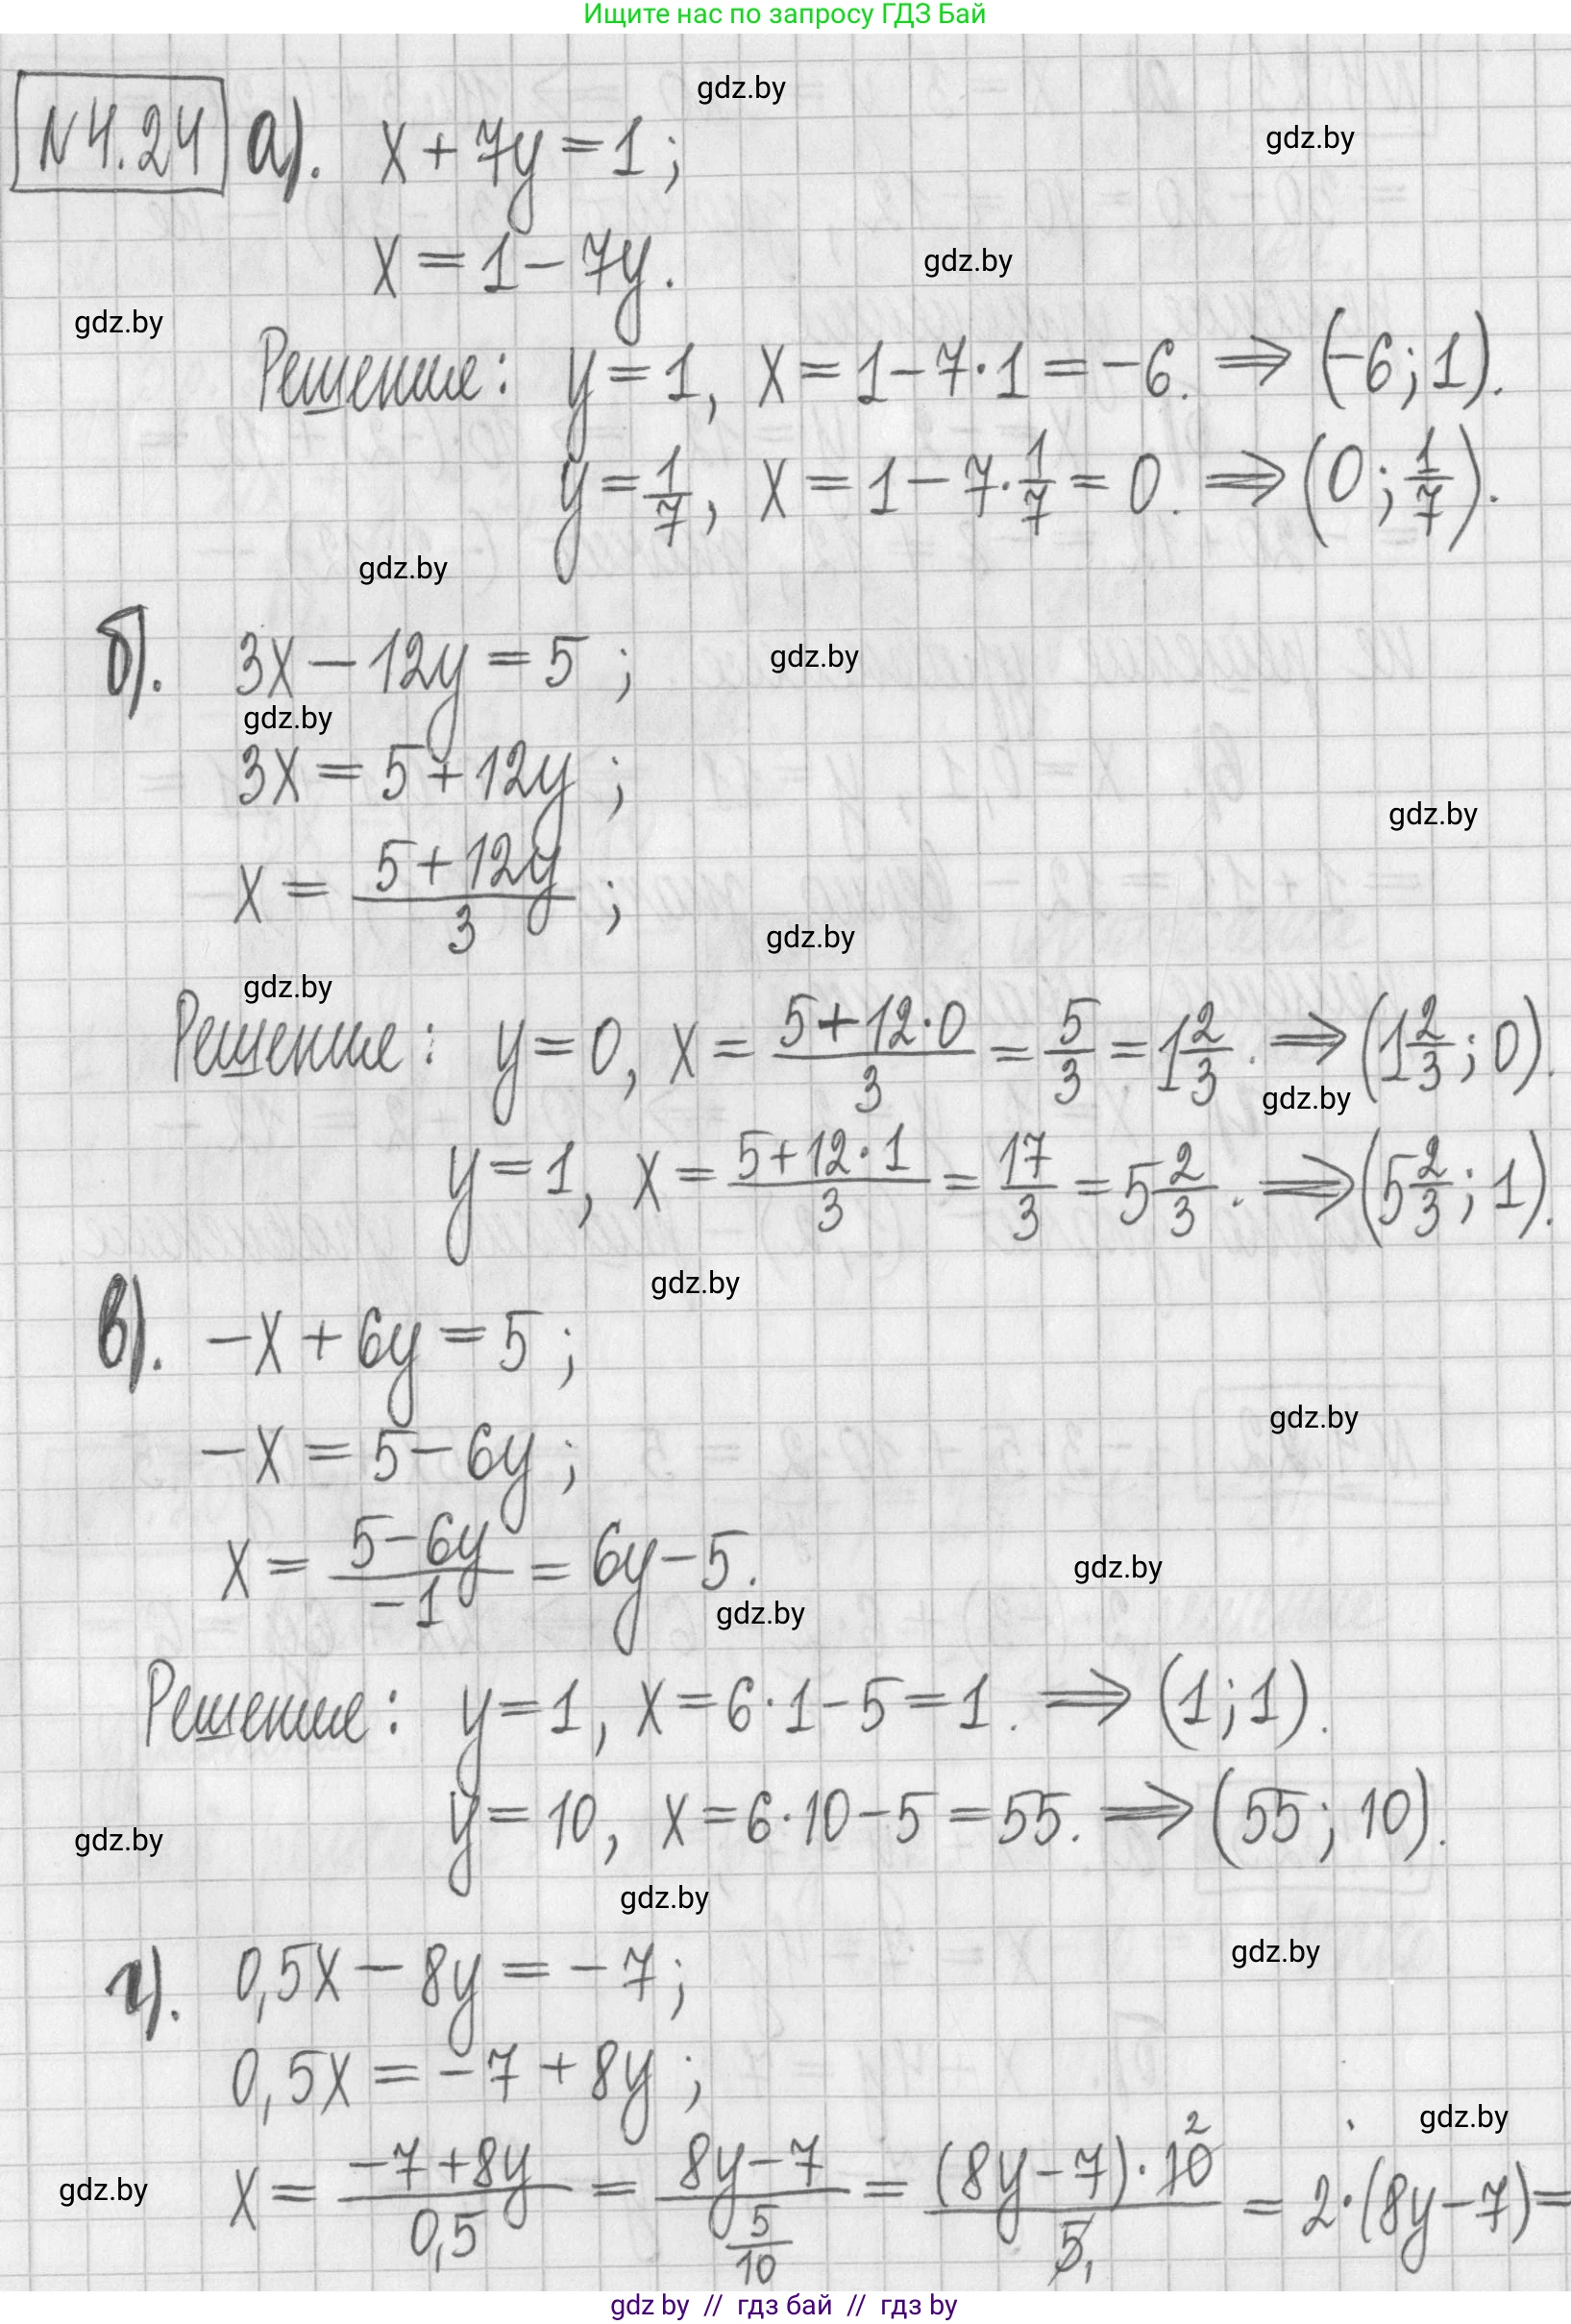 Ищите нас по запросу ГДЗ Бай
gdz.by
N 4.24 а). x + 7y = 1 ;
gdz.by
x = 1 - 7y.
gdz.by
gdz.by
Решение: y = 1, x = 1 - 7·1 = -6. ⇒ (-6; 1).
y = 1/7, x = 1 - 7·1/7 = 0. ⇒ (0; 1/7).
gdz.by
б). 3x - 12y = 5 ;
gdz.by
gdz.by
3x = 5 + 12y ;
gdz.by
x = (5 + 12y)/3 ;
gdz.by
gdz.by
Решение: y = 0, x = (5 + 12·0)/3 = 5/3 = 1 2/3. ⇒ (1 2/3; 0).
gdz.by
y = 1, x = (5 + 12·1)/3 = 17/3 = 5 2/3. ⇒ (5 2/3; 1).
gdz.by
в). -x + 6y = 5 ;
gdz.by
-x = 5 - 6y ;
x = (5 - 6y)/-1 = 6y - 5.
gdz.by
gdz.by
Решение: y = 1, x = 6·1 - 5 = 1. ⇒ (1; 1).
y = 10, x = 6·10 - 5 = 55. ⇒ (55; 10).
gdz.by
gdz.by
gdz.by
г). 0,5x - 8y = -7 ;
0,5x = -7 + 8y ;
gdz.by
gdz.by
x = (-7 + 8y)/0,5 = (8y - 7)/(5/10) = ((8y - 7)·10 2)/5 1 = 2·(8y - 7) =
gdz by // гдз бай // гдз by